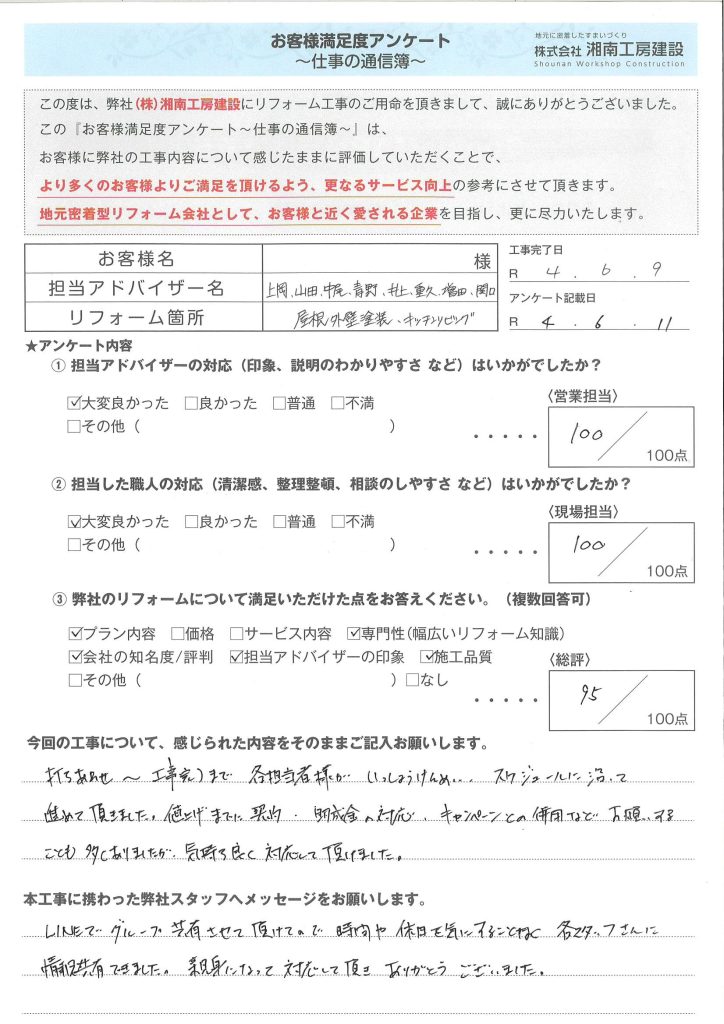 お客様満足度アンケート
～仕事の通信簿～
地元に密着したすまいづくり
株式会社 湘南工房建設
Shounan Workshop Construction
この度は、弊社(株)湘南工房建設にリフォーム工事のご用命を頂きまして、誠にありがとうございました。
この『お客様満足度アンケート～仕事の通信簿～』は、
お客様に弊社の工事内容について感じたままに評価していただくことで、
より多くのお客様よりご満足を頂けるよう、更なるサービス向上の参考にさせて頂きます。
地元密着型リフォーム会社として、お客様と近く愛される企業を目指し、更に尽力いたします。
お客様名 様
担当アドバイザー名 上岡、山田、中尾、青野、井上、重久、増田、関口
リフォーム箇所 屋根/外壁塗装、キッチンリビング
工事完了日
R 4 . 6 . 9
アンケート記載日
R 4 . 6 . 11
★アンケート内容
① 担当アドバイザーの対応（印象、説明のわかりやすさ など）はいかがでしたか？
☑大変良かった □良かった □普通 □不満
□その他（ ）
〈営業担当〉
100 / 100点
② 担当した職人の対応（清潔感、整理整頓、相談のしやすさ など）はいかがでしたか？
☑大変良かった □良かった □普通 □不満
□その他（ ）
〈現場担当〉
100 / 100点
③ 弊社のリフォームについて満足いただけた点をお答えください。（複数回答可）
☑プラン内容 □価格 □サービス内容 ☑専門性(幅広いリフォーム知識)
☑会社の知名度/評判 ☑担当アドバイザーの印象 ☑施工品質
□その他（ ）□なし
〈総評〉
95 / 100点
今回の工事について、感じられた内容をそのままご記入お願いします。
打ちあわせ～工事完了まで 各担当者様が いっしょうけんめい、スケジュールに沿って
進めて頂きました。値上げまでに契約・助成金の対応、キャンペーンとの併用など お願いする
ことも多くありましたが、気持ち良く対応して頂けました。
本工事に携わった弊社スタッフへメッセージをお願いします。
LINEでグループ共有させて頂けたので 時間や休日を気にすることなく 各スタッフさんに
情報共有できました。親身になって対応して頂き ありがとうございました。